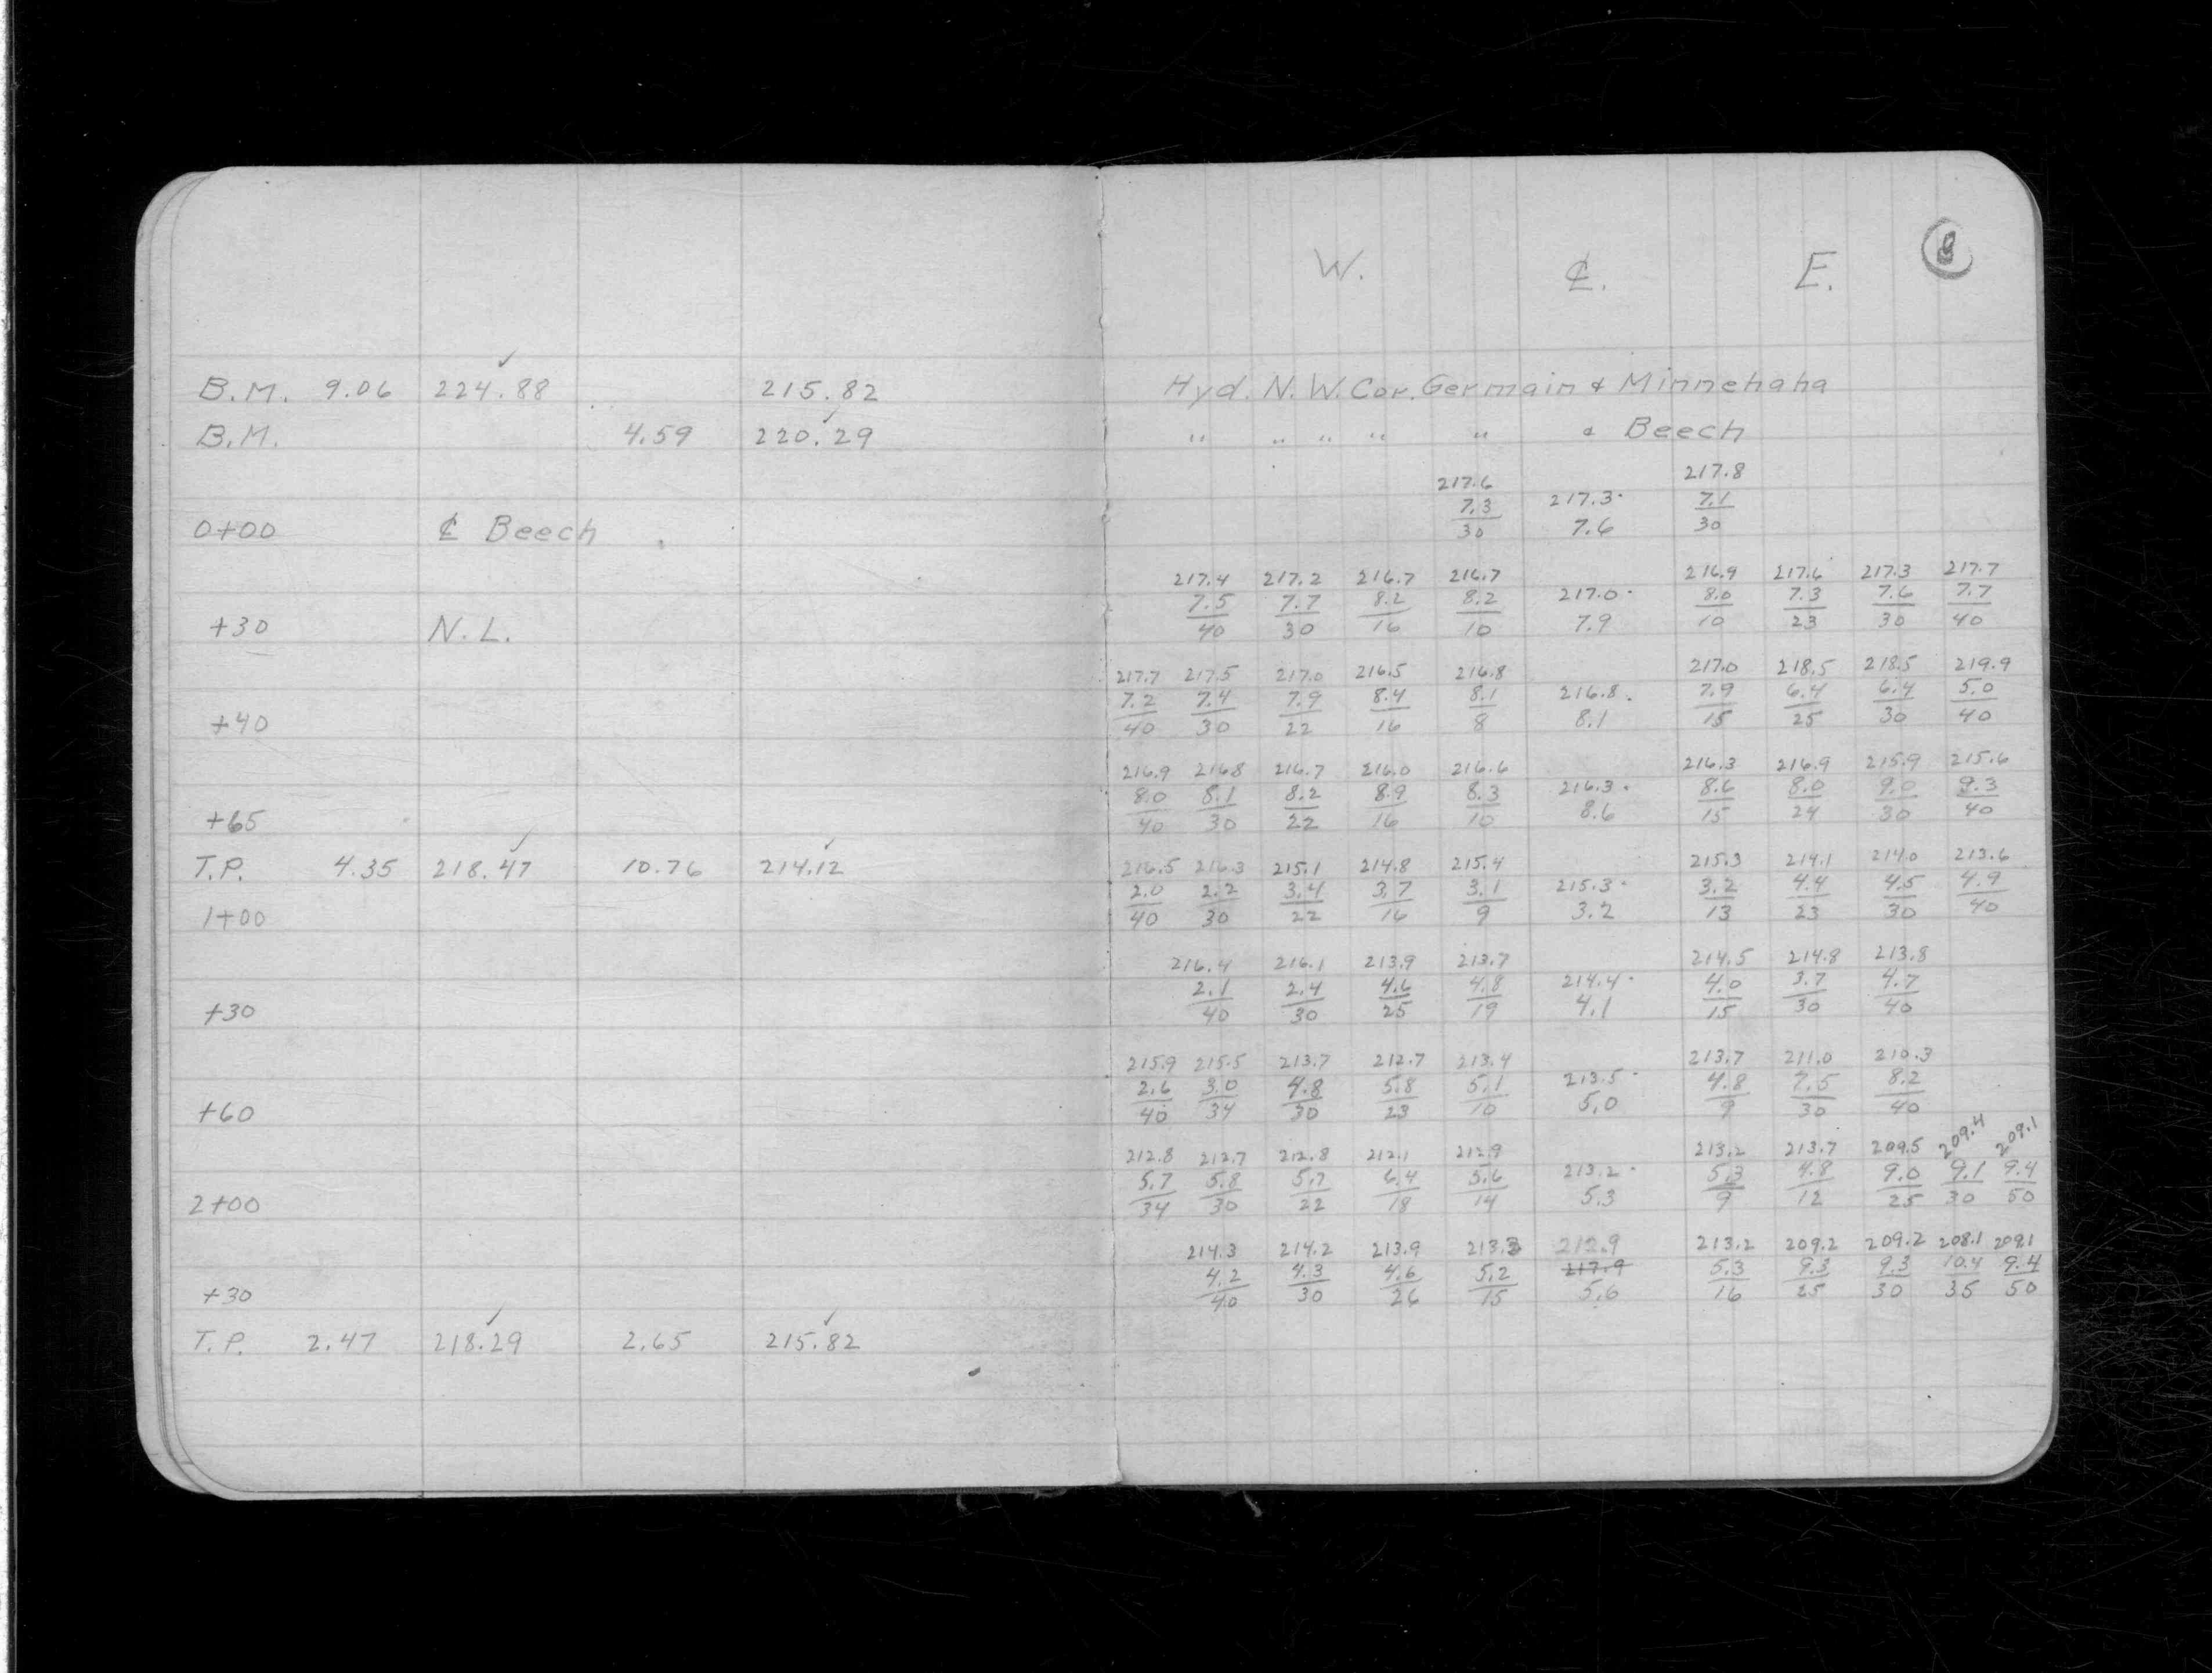 W. ℄. E. 8
B.M. 9.06 224.88 215.82 Hyd. N.W. Cor. Germain & Minnehaha
B.M. 4.59 220.29 " " " " " & Beech
217.6 217.3 217.8
7.3 7.6 7.1
0+00 ℄ Beech 30 30
217.4 217.2 216.7 216.7 217.0 216.9 217.6 217.3 217.7
7.5 7.7 8.2 8.2 7.9 8.0 7.3 7.6 7.7
+30 N.L. 40 30 16 10 10 23 30 40
217.7 217.5 217.0 216.5 216.8 216.8 217.0 218.5 218.5 219.9
7.2 7.4 7.9 8.4 8.1 8.1 7.9 6.4 6.4 5.0
+40 40 30 22 16 8 15 25 30 40
216.9 216.8 216.7 216.0 216.6 216.3 216.3 216.9 215.9 215.6
8.0 8.1 8.2 8.9 8.3 8.6 8.6 8.0 9.0 9.3
+65 40 30 22 16 10 15 24 30 40
T.P. 4.35 218.47 10.76 214.12
216.5 216.3 215.1 214.8 215.4 215.3 215.3 214.1 214.0 213.6
2.0 2.2 3.4 3.7 3.1 3.2 3.2 4.4 4.5 4.9
1+00 40 30 22 16 9 13 23 30 40
216.4 216.1 213.9 213.7 214.4 214.5 214.8 213.8
2.1 2.4 4.6 4.8 4.1 4.0 3.7 4.7
+30 40 30 25 19 15 30 40
215.9 215.5 213.7 212.7 213.4 213.5 213.7 211.0 210.3
2.6 3.0 4.8 5.8 5.1 5.0 4.8 7.5 8.2
+60 40 34 30 23 10 9 30 40
212.8 212.7 212.8 212.1 212.9 213.2 213.2 213.7 209.5 209.4 209.1
5.7 5.8 5.7 6.4 5.6 5.3 5.3 4.8 9.0 9.1 9.4
2+00 34 30 22 18 14 9 12 25 30 50
214.3 214.2 213.9 213.3 212.9 213.2 209.2 209.2 208.1 209.1
4.2 4.3 4.6 5.2 217.9 5.3 9.3 9.3 10.4 9.4
+30 40 30 26 15 5.6 16 25 30 35 50
T.P. 2.47 218.29 2.65 215.82